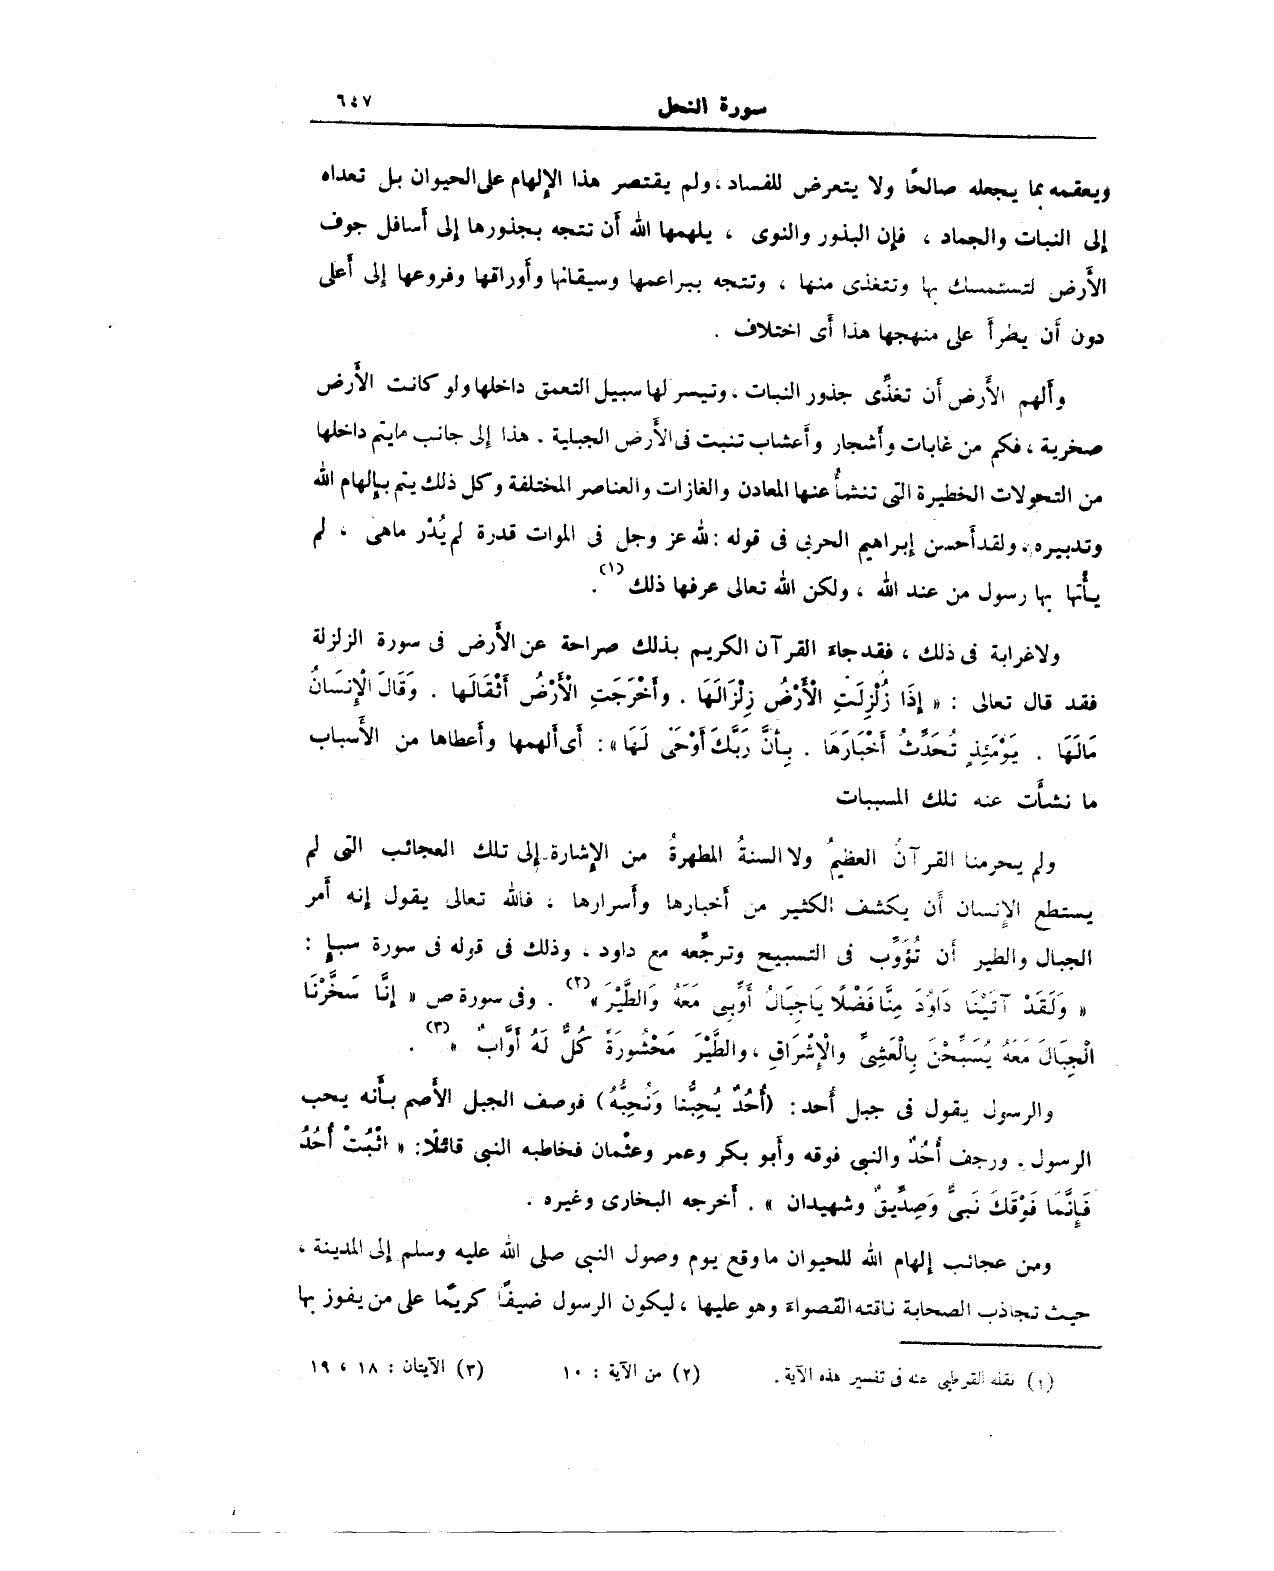 سورة النحل ٦٤٧
ويعقمه بما يجعله صالحًا ولا يتعرض للفساد ، ولم يقتصر هذا الإلهام على الحيوان بل تعداه
إلى النبات والجماد ، فإن البذور والنوى ، يلهمها الله أن تتجه بجذورها إلى أسافل جوف
الأَرض لتستمسك بها وتتغذى منها ، وتتجه ببراعمها وسيقانها وأَوراقها وفروعها إلى أَعلى
دون أَن يطرأَ على منهجها هذا أَى اختلاف .
وأَلهم الأَرض أَن تغذِّى جذور النبات ، وتيسر لها سبيل التعمق داخلها ولو كانت الأَرض
صخرية ، فكم من غابات وأَشجار وأَعشاب تنبت فى الأَرض الجبلية . هذا إلى جانب مايتم داخلها
من التحولات الخطيرة التى تنشأُ عنها المعادن والغازات والعناصر المختلفة وكل ذلك يتم بإلهام الله
وتدبيره ، ولقد أَحسن إبراهيم الحربى فى قوله : لله عز وجل فى الموات قدرة لم يُدْر ماهى ، لم
يأْتها بها رسول من عند الله ، ولكن الله تعالى عرفها ذلك (١) .
ولاغرابة فى ذلك ، فقد جاء القرآن الكريم بذلك صراحة عن الأَرض فى سورة الزلزلة
فقد قال تعالى : « إِذَا زُلْزِلَتِ الْأَرْضُ زِلْزَالَهَا . وأَخْرَجَتِ الْأَرْضُ أَثْقَالَها . وَقَالَ الْإِنسَانُ
مَالَهَا . يَوْمَئِذٍ تُحَدِّثُ أَخْبَارَهَا . بِأَنَّ رَبَّكَ أَوْحَى لَهَا » : أَى أَلهمها وأَعطاها من الأَسباب
ما نشأَت عنه تلك المسببات
ولم يحرمنا القرآنُ العظيمُ ولا السنةُ المطهرةُ من الإشارة إلى تلك العجائب التى لم
يستطع الإنسان أَن يكشف الكثير من أَخبارها وأَسرارها ، فالله تعالى يقول إنه أَمر
الجبال والطير أَن تُؤَوِّب فى التسبيح وترجِّعه مع داود ، وذلك فى قوله فى سورة سبإ :
« وَلَقَدْ آتَيْنَا دَاوُدَ مِنَّا فَضْلًا يَاجِبَالُ أَوِّبِى مَعَهُ وَالطَّيْرَ » (٢) . وفى سورة ص « إِنَّا سَخَّرْنَا
الْجِبَالَ مَعَهُ يُسَبِّحْنَ بِالْعَشِىِّ والْإِشْرَاقِ ، والطَّيْرَ مَحْشُورَةً كُلٌّ لَهُ أَوَّابٌ » (٣) .
والرسول يقول فى جبل أُحد : (أُحُدٌ يُحِبُّنا وَنُحِبُّهُ) فوصف الجبل الأَصم بأَنه يحب
الرسول . ورجف أُحُدٌ والنبى فوقه وأَبو بكر وعمر وعثْمان فخاطبه النبى قائلًا : « اثْبُتْ أُحُدُ
فَإِنَّمَا فَوْقَكَ نَبىٌّ وَصِدِّيقٌ وشهيدان » . أَخرجه البخارى وغيره .
ومن عجائب إلهام الله للحيوان ماوقع يوم وصول النبى صلى الله عليه وسلم إلى المدينة ،
حيث تجاذب الصحابة ناقته القصواء وهو عليها ، ليكون الرسول ضيفًا كريمًا على من يفوز بها
(١) نقله القرطبى عنه فى تفسير هذه الآية . (٢) من الآية : ١٠ (٣) الآيتان : ١٨ ، ١٩